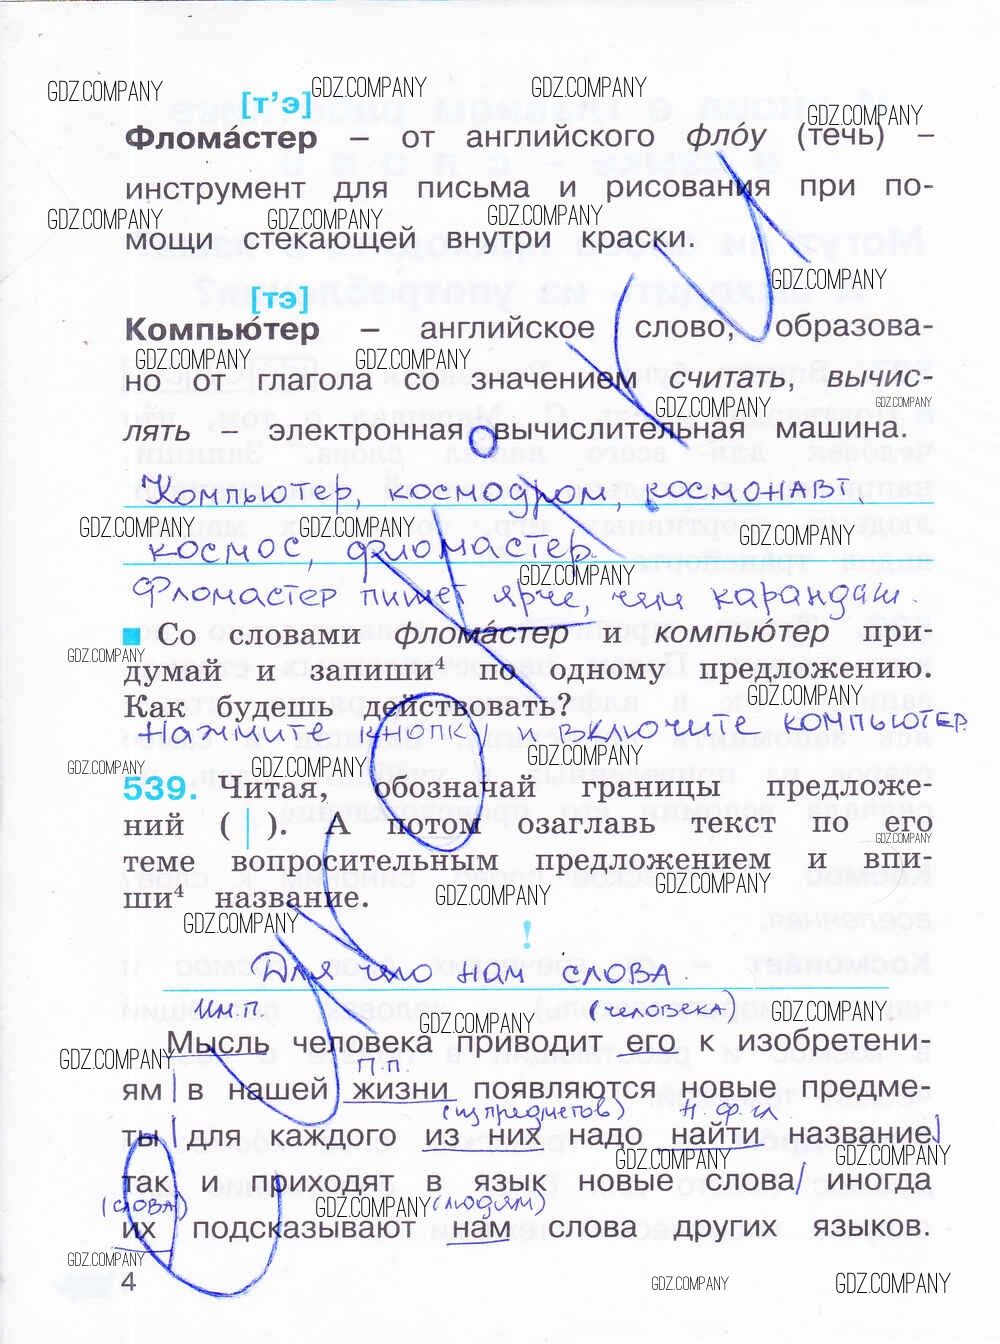 GDZ.COMPANY GDZ.COMPANY GDZ.COMPANY
[т’э] GDZ.COMPANY
Флома́стер – от английского фло́у (течь) –
инструмент для письма и рисования при по-
GDZ.COMPANY GDZ.COMPANY GDZ.COMPANY
мощи стекающей внутри краски.
GDZ.COMPANY
[тэ]
Компью́тер – английское слово, образова-
GDZ.COMPANY GDZ.COMPANY
но от глагола со значением считать, вычис-
GDZ.COMPANY GDZ.COMPANY
лять – электронная вычислительная машина.
Компьютер, космодром, космонавт,
GDZ.COMPANY GDZ.COMPANY GDZ.COMPANY
космос, фломастер.
GDZ.COMPANY
Фломастер пишет ярче, чем карандаш.
Со словами флома́стер и компью́тер при-
GDZ.COMPANY
думай и запиши⁴ по одному предложению.
GDZ.COMPANY
Как будешь действовать?
Нажмите кнопку и включите компьютер
GDZ.COMPANY GDZ.COMPANY GDZ.COMPANY
539. Читая, обозначай границы предложе-
ний ( | ). А потом озаглавь текст по его
GDZ.COMPANY
теме вопросительным предложением и впи-
GDZ.COMPANY GDZ.COMPANY
ши⁴ название.
GDZ.COMPANY
!
Для чего нам слова
Им.п. (человека) GDZ.COMPANY
GDZ.COMPANY
Мысль человека приводит его к изобретени-
GDZ.COMPANY П.п.
ям | в нашей жизни появляются новые предме-
(из предметов) Н.ф.гл
ты | для каждого из них надо найти название|
GDZ.COMPANY GDZ.COMPANY
так и приходят в язык новые слова/ иногда
(слова) GDZ.COMPANY (людям)
их подсказывают нам слова других языков.
GDZ.COMPANY
4 GDZ.COMPANY GDZ.COMPANY